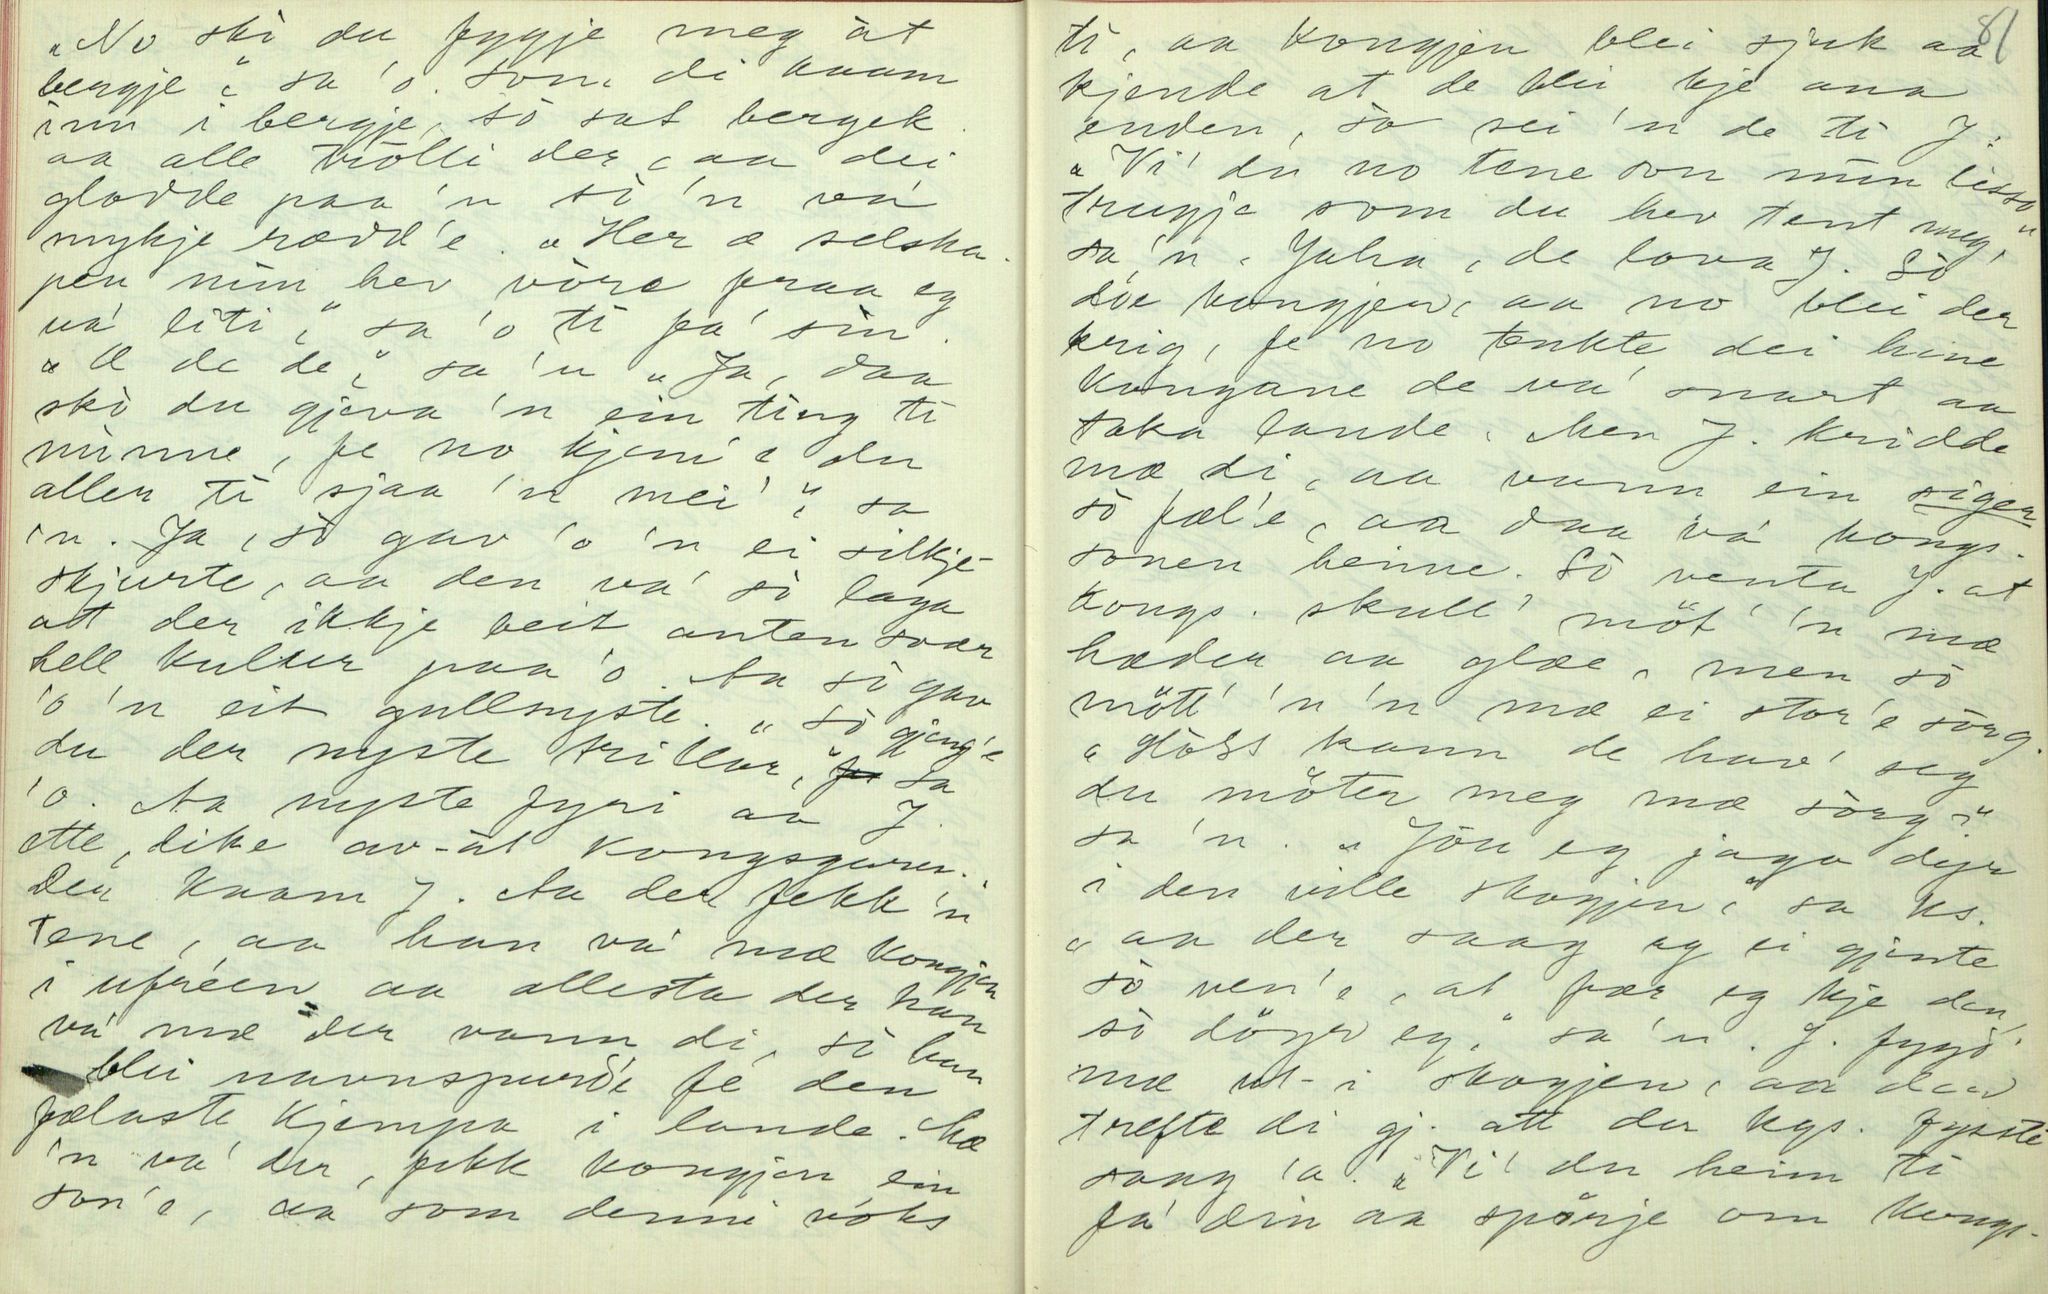 „No ski du fyggje meg åt
bergje“, sa 'o. Som di kaam
inn i bergje, so sat bergek.
aa alle trölli der, aa dei
glodde paa 'n so 'n va'
mykje rædd'e. „Her æ selska-
pen min hev vore fraa eg
va' liti“, sa 'o ti fa' sin.
„Æ de de“, sa 'n „Ja, daa
ski du gjeva 'n ein ting ti
minne, fe no kjem'e du
aller ti sjaa 'n mei'“, sa
'n. Ja, so gav 'o 'n ei silkje-
skjurte, aa den va' so laga
att der ikkje beit anten svær
hell kuller paa 'o. Aa so gav
'o 'n eit gullnyste. „So gjeng'e
du der nyste trillar,“ sa
'o. Aa nyste fyri aa J.
ette, like av-åt kongsgaren.
Der kaam J. Aa der fekk 'n
tene, aa han va' mæ kongjen
i ufreen aa allesta der han
va' mæ der vann di, so han
blei navnspurd'e fe den
fælaste kjempa i lande. Mæ
'n va' der, fekk kongjen ein
son'e, aa som denni voks
81
ti, aa kongjen blei sjuk aa
kjende at de blei kje ana
enden, so sei 'n de ti J.
„Vi' du no tene son min lisso
trugje som du hev tent meg,“
sa 'n. Jaha, de lova J. So
döe kongjen, aa no blei der
krig, fe no tenkte dei hine
kongane de va' snart aa
taka lande. Men J. kridde
mæ di, aa vann ein siger
so fæl'e, aa daa va' kongs-
sonen heime. So venta J. at
kongs. skull' möt' 'n mæ
hæder aa glæe, men so
mött' 'n 'n mæ ei stor'e sorg.
„Hoss kann de hav' seg
du möter meg mæ sorg?“
sa 'n. „Jou eg jaga dyr
i den ville skogjen,“ sa ks.
„aa der saag eg ei gjente
so ven'e, at fær eg kje den,
so döyr eg,“ sa 'n. J. fygd'
mæ ut-i skogjen, aa der
trefte di gj. att der kgs. fysste
saag 'a. „Vi' du heim ti
fa' din aa spörje om kongs-